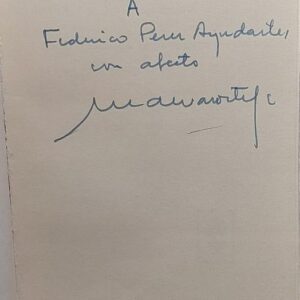 A
Federico Perez Ayudartes
con afecto